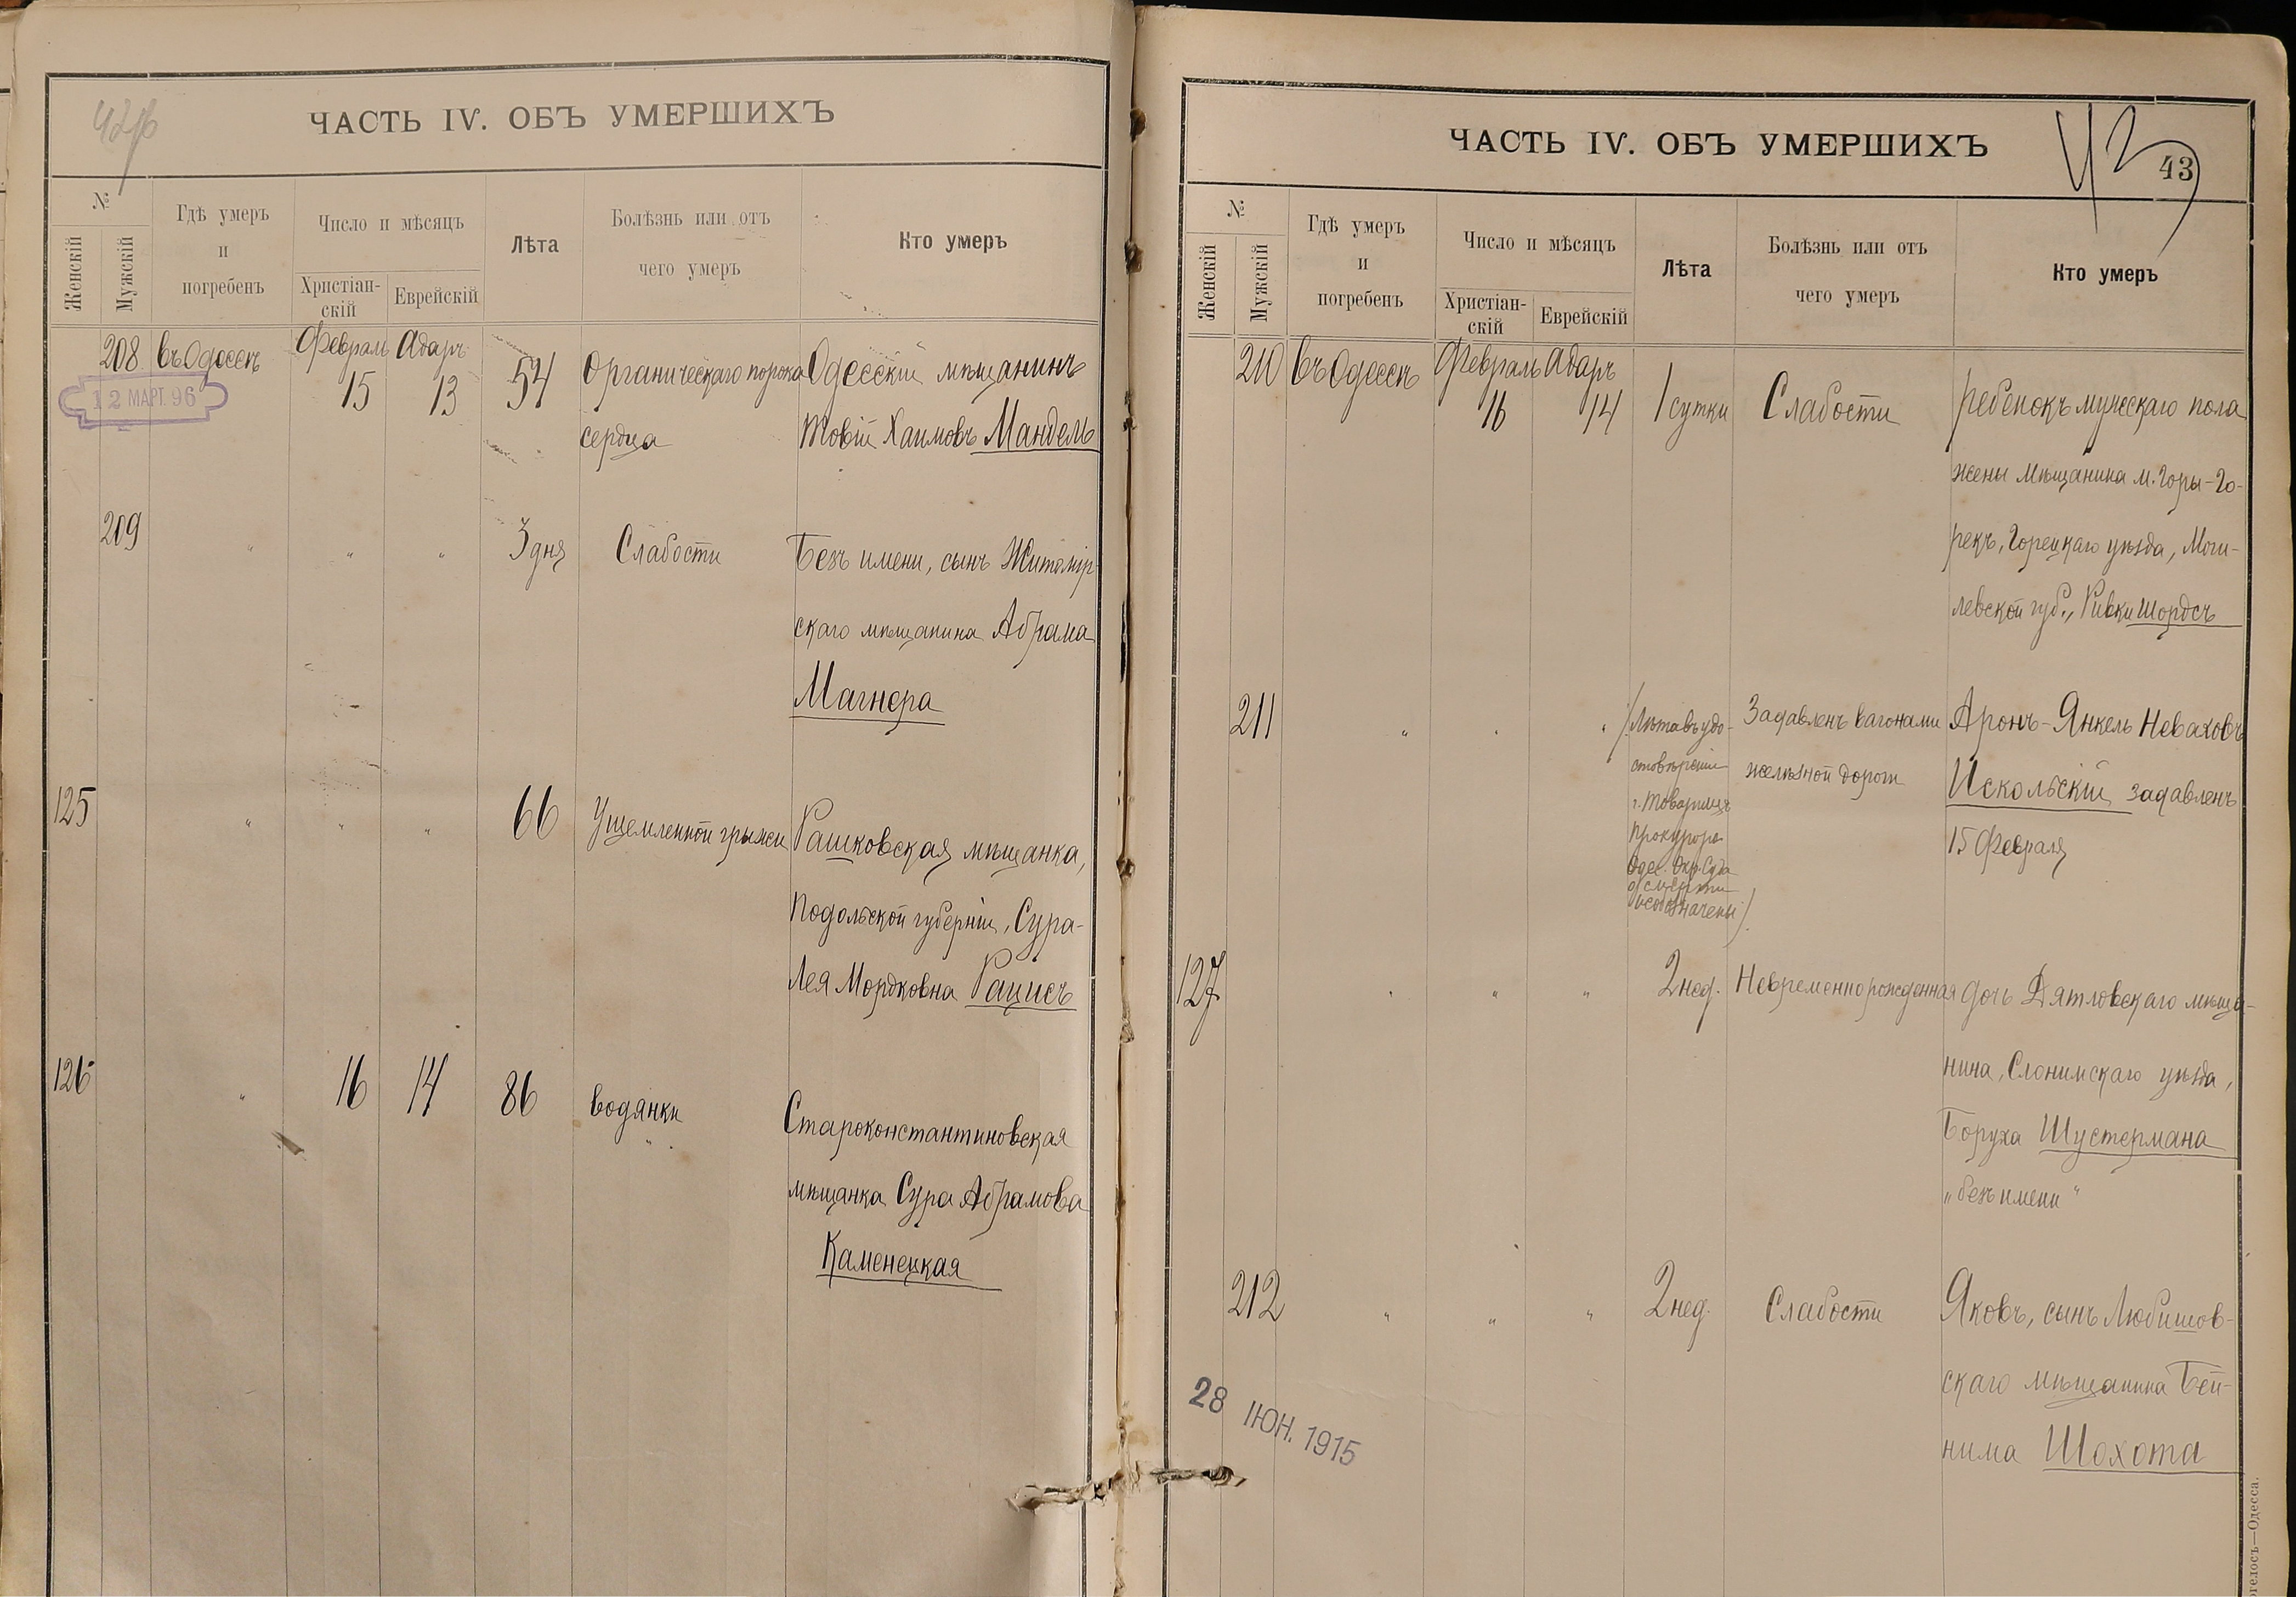 42об
ЧАСТЬ IV. ОБЪ УМЕРШИХЪ
№
Женскій
Мужскій
Гдѣ умеръ
и
погребенъ
Число и мѣсяцъ
Христіан-
скій
Еврейскій
Лѣта
Болѣзнь или отъ
чего умеръ
Кто умеръ
208 въ Одессѣ Февраль Адаръ
15 13 54 Органическаго порока Одесскій мѣщанинъ
12 МАРТ. 96
сердца Товій Хаимовъ Мандель
209 " " " 3 дня Слабости Безъ имени, сынъ Житомір-
скаго мѣщанина Абрама
Магнера
125 " " " 66 Ущемленной грыжи Рашковская мѣщанка,
Подольской губерніи, Сура-
Лея Мордковна Рацисъ
126 " 16 14 86 водянки Староконстантиновская
мѣщанка Сура Абрамова
Каменецкая
ЧАСТЬ IV. ОБЪ УМЕРШИХЪ
43
43
№
Женскій
Мужскій
Гдѣ умеръ
и
погребенъ
Число и мѣсяцъ
Христіан-
скій
Еврейскій
Лѣта
Болѣзнь или отъ
чего умеръ
Кто умеръ
210 въ Одессѣ Февраль Адаръ
16 14 1 сутки Слабости ребенокъ мужескаго пола
жены мѣщанина м. Горы-Го-
рекъ, Горецкаго уѣзда, Моги-
левской губ., Ривки Шордсъ
211 " " " /Лѣта въ удо- Задавленъ вагонами Аронъ-Янкель Неваховъ
стовѣреніи желѣзной дороги Искольскій задавленъ
г. Товарища
Прокурора 15 Февраля
Одес. Окр. Суда
о смерти
не обозначены/
127 " " " 2 нед. Невременнорожденная дочь Дятловскаго мѣща-
нина, Слонимскаго уѣзда,
Боруха Шустермана
"безъ имени"
212 " " " 2 нед. Слабости Яковъ, сынъ Любишов-
скаго мѣщанина Бей-
нима Шохота
28 ІЮН. 1915
гелосъ—Одесса.